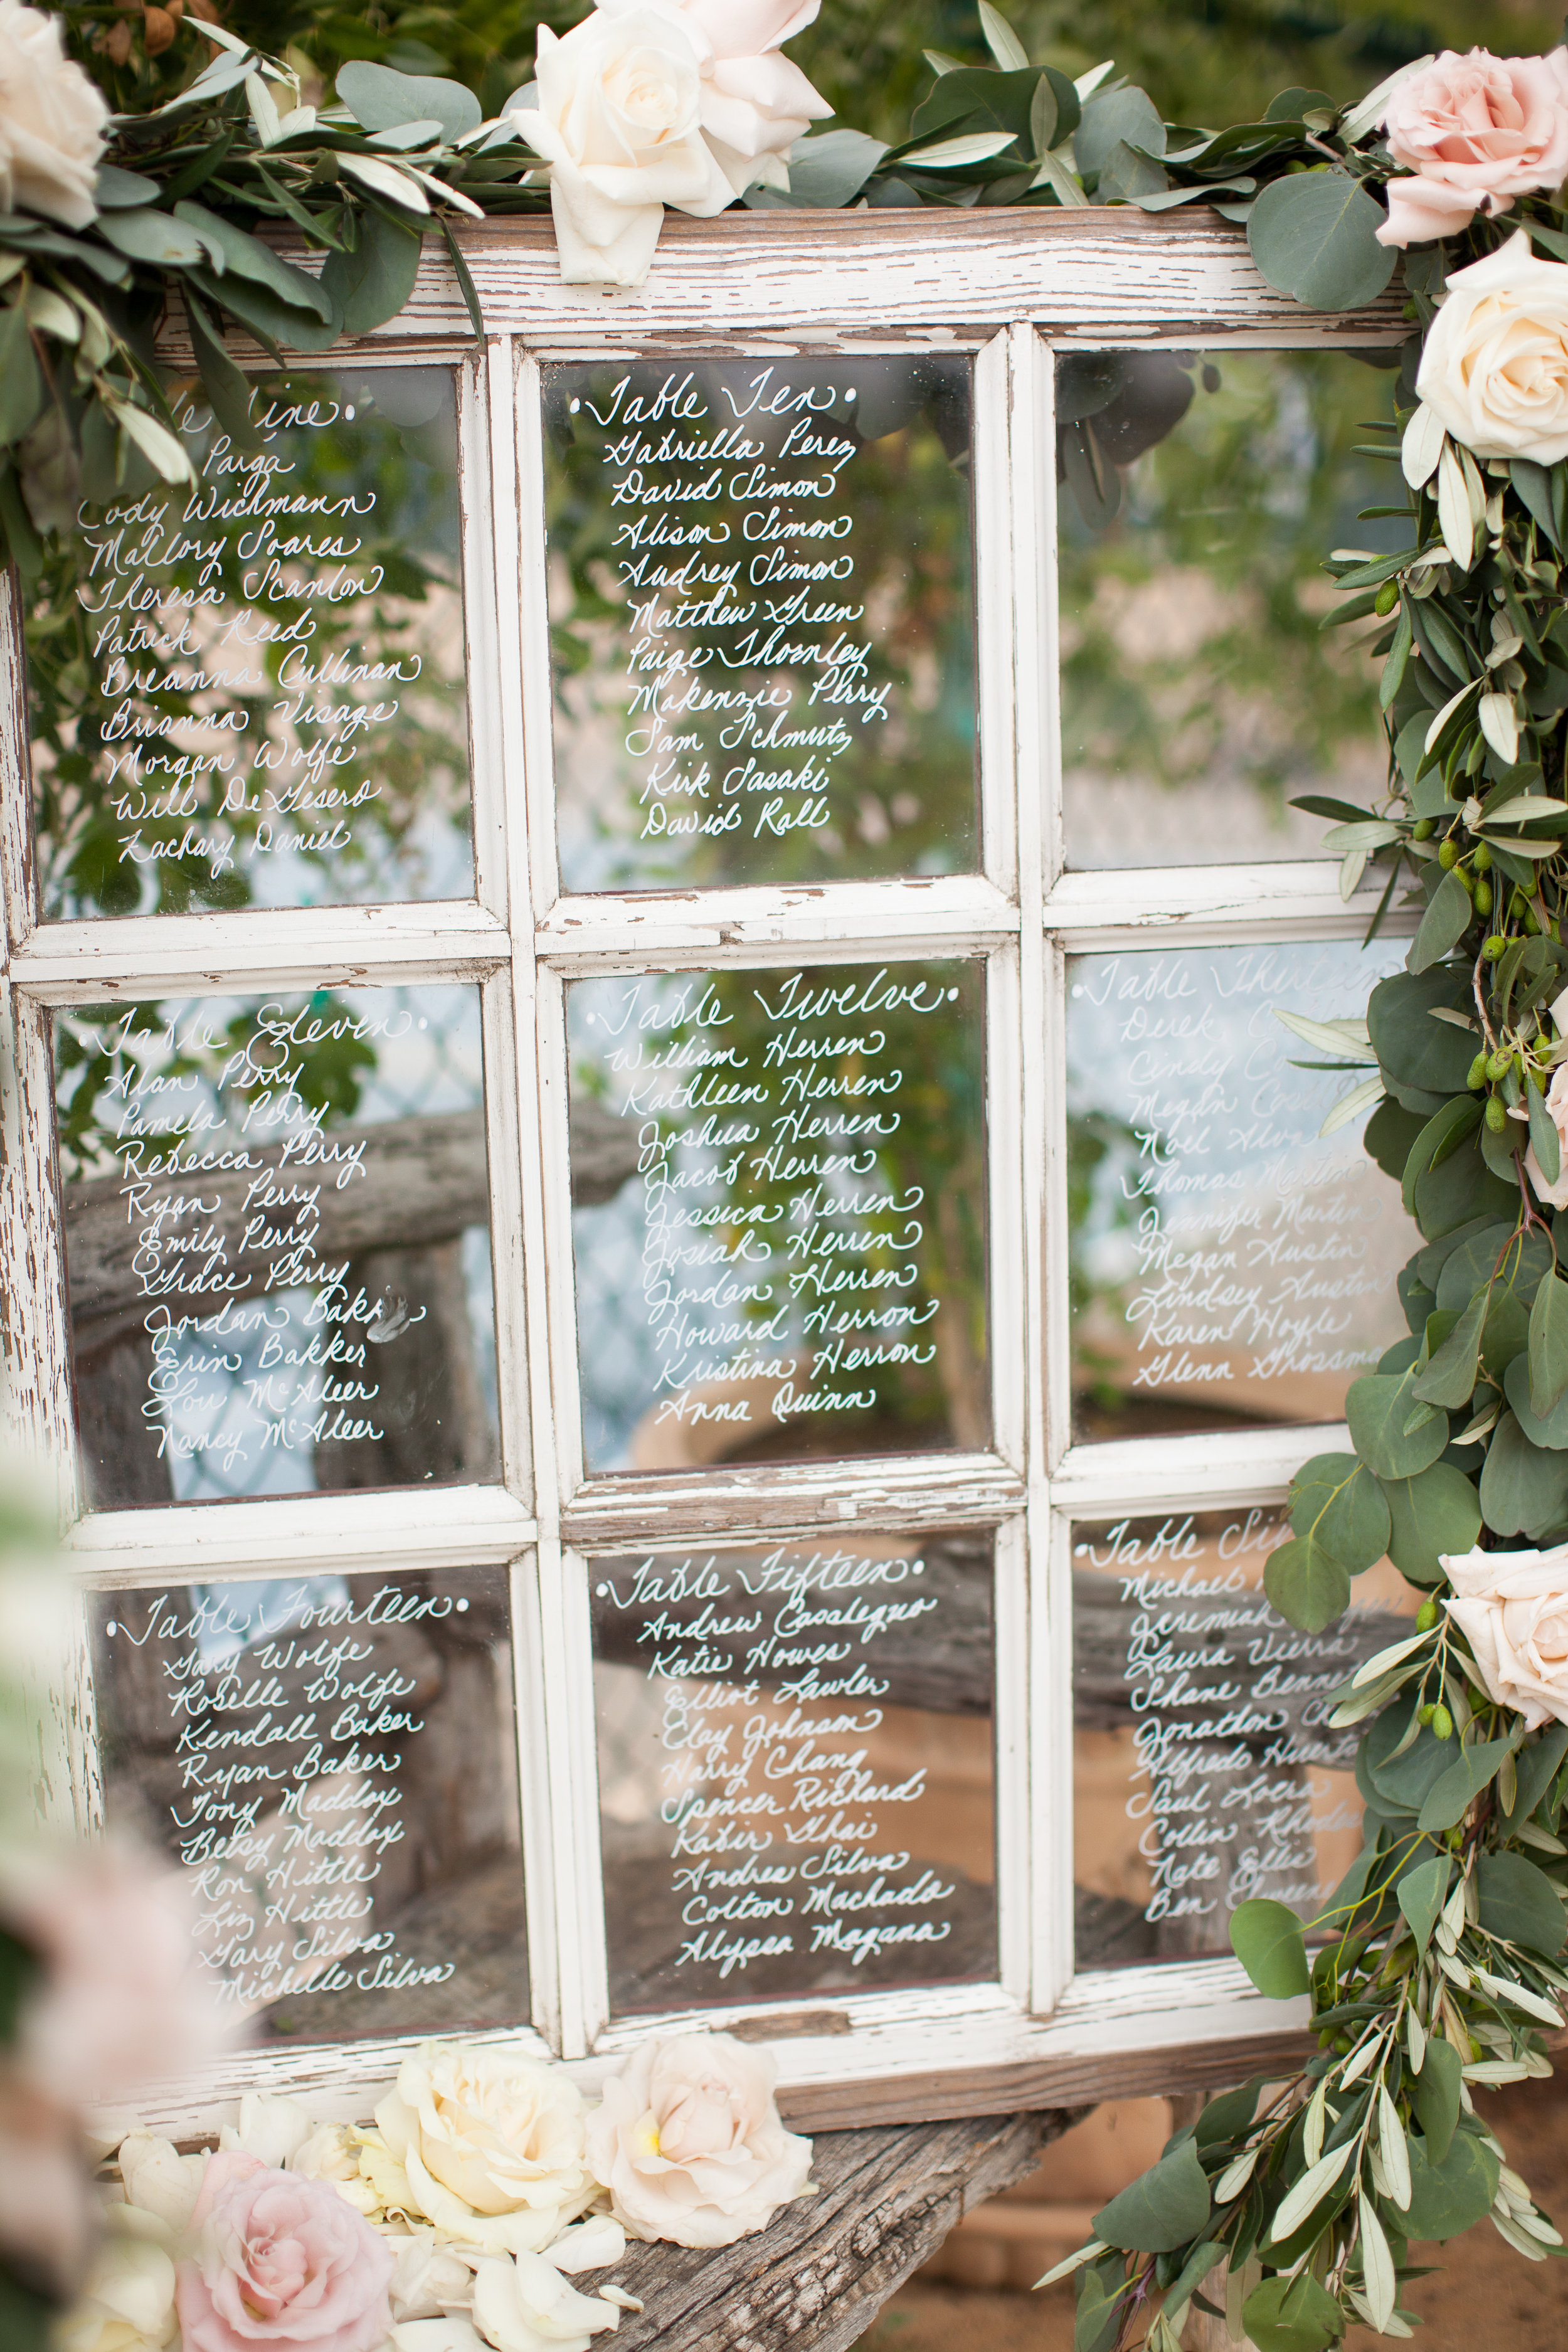 Parga
Cody Wichmann
Mallory Soares
Theresa Scanlon
Patrick Reed
Breanna Cullinan
Brianna Visage
Morgan Wolfe
Will DeGesero
Zachary Daniel
• Table Ten •
Gabriella Perez
David Simon
Alison Simon
Audrey Simon
Matthew Green
Paige Thornley
Makenzie Perry
Sam Schmutz
Kirk Sasaki
David Rall
• Table Eleven •
Alan Perry
Pamela Perry
Rebecca Perry
Ryan Perry
Emily Perry
Grace Perry
Jordan
Erin Bakker
Lou McAleer
Nancy McAleer
• Table Twelve •
William Herren
Kathleen Herren
Joshua Herren
Jacob Herren
Jessica Herren
Josiah Herren
Jordan Herren
Howard Herron
Kristina Herron
Anna Quinn
• Table
Derek
Cindy
Megan
Noel Alva
Thomas Martin
Jennifer Martin
Megan Austin
Lindsey Austin
Karen Hoyle
Glenn
• Table Fourteen •
Gary Wolfe
Roselle Wolfe
Kendall Baker
Ryan Baker
Tony Maddox
Betsy Maddox
Ron Hittle
Liz Hittle
Gary Silva
Michelle Silva
• Table Fifteen •
Andrew Casalegno
Katie Howes
Elliot Lawler
Clay Johnson
Harry Chang
Spencer Richard
Kabir Ghai
Andrea Silva
Colton Machado
Alyssa Magana
• Table
Michael
Jeremiah
Laura Vierra
Shane
Jonathon
Alfredo
Saul Loera
Collin
Nate Ellis
Ben